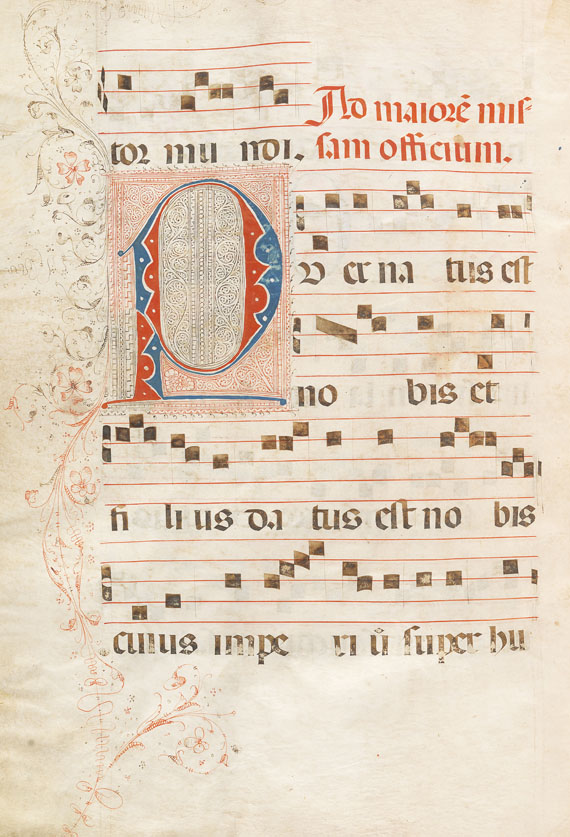 Ad maiorē mis-
tor mu ndi. sam officium.
P
V er na tus est
no bis et
fi li us da tus est no bis
cuius impe ri ū super hu